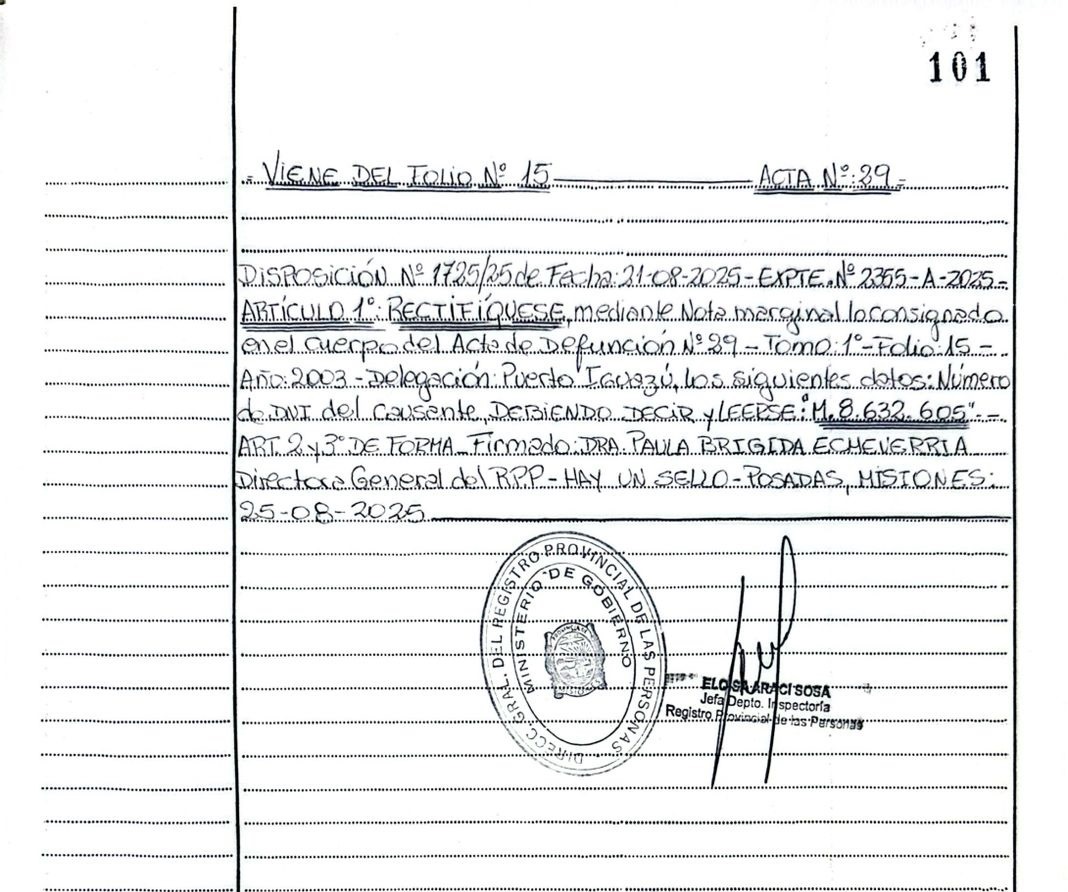 101
- VIENE DEL FOLIO Nº 15 ACTA Nº: 29 -
DISPOSICIÓN Nº 1725/25 de Fecha: 21-08-2025 - EXPTE. Nº 2355-A-2025 -
ARTÍCULO 1º: RECTIFÍQUESE, mediante Nota marginal lo consignado
en el cuerpo del Acta de Defunción Nº 29 - Tomo: 1º - Folio 15 -
Año: 2003 - Delegación: Puerto Iguazú, los siguientes datos: Número
de DNI del causante, DEBIENDO DECIR y LEERSE: "M. 8.632.605" -
ART. 2 y 3º DE FORMA - Firmado: DRA. PAULA BRIGIDA ECHEVERRIA
Directora General del RPP - HAY UN SELLO - POSADAS, MISIONES:
25-08-2025
DIRECC. GRAL. DEL REGISTRO PROVINCIAL DE LAS PERSONAS
MINISTERIO DE GOBIERNO
ELOISA ARACI SOSA
Jefa Depto. Inspectoría
Registro Provincial de las Personas